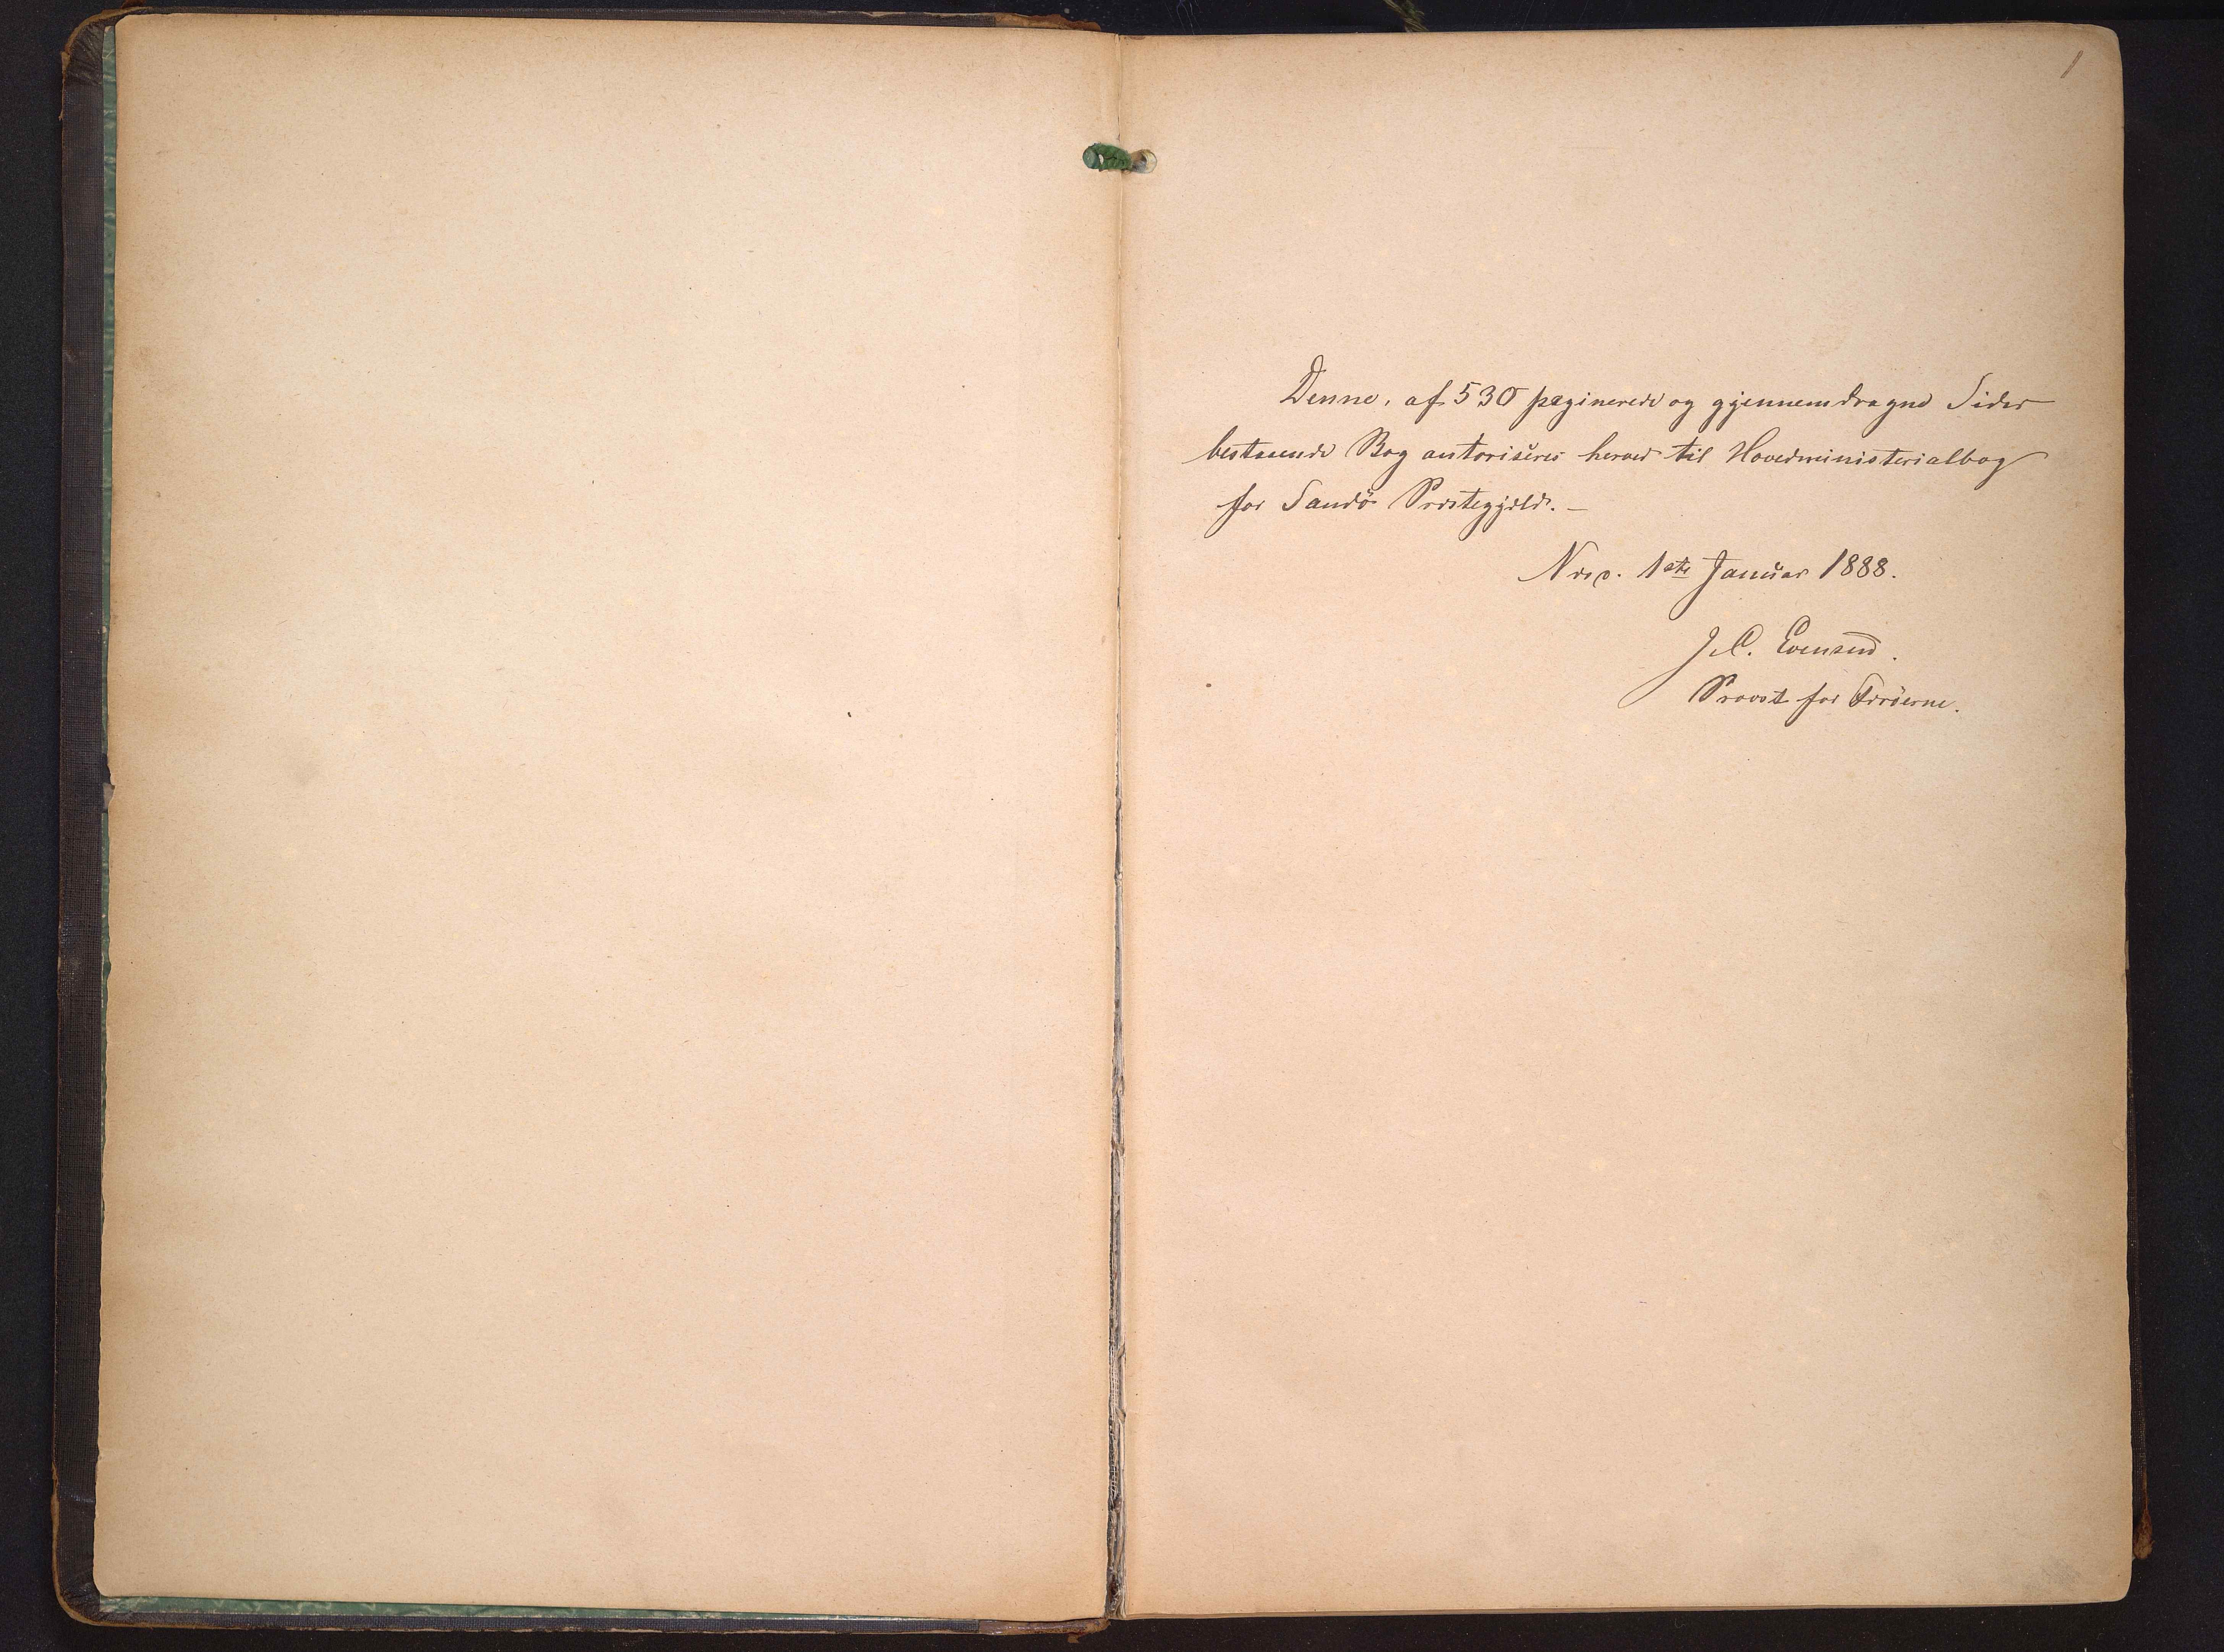 1
Denne, af 530 paginerede og gjennemdragne Sider
bestaaende Bog autoriseres herved til Hovedministerialbog
for Sandö Præstegjæld. —
Næs. 1ste Januar 1888.
J. C. Evensen.
Provst for Færöerne.